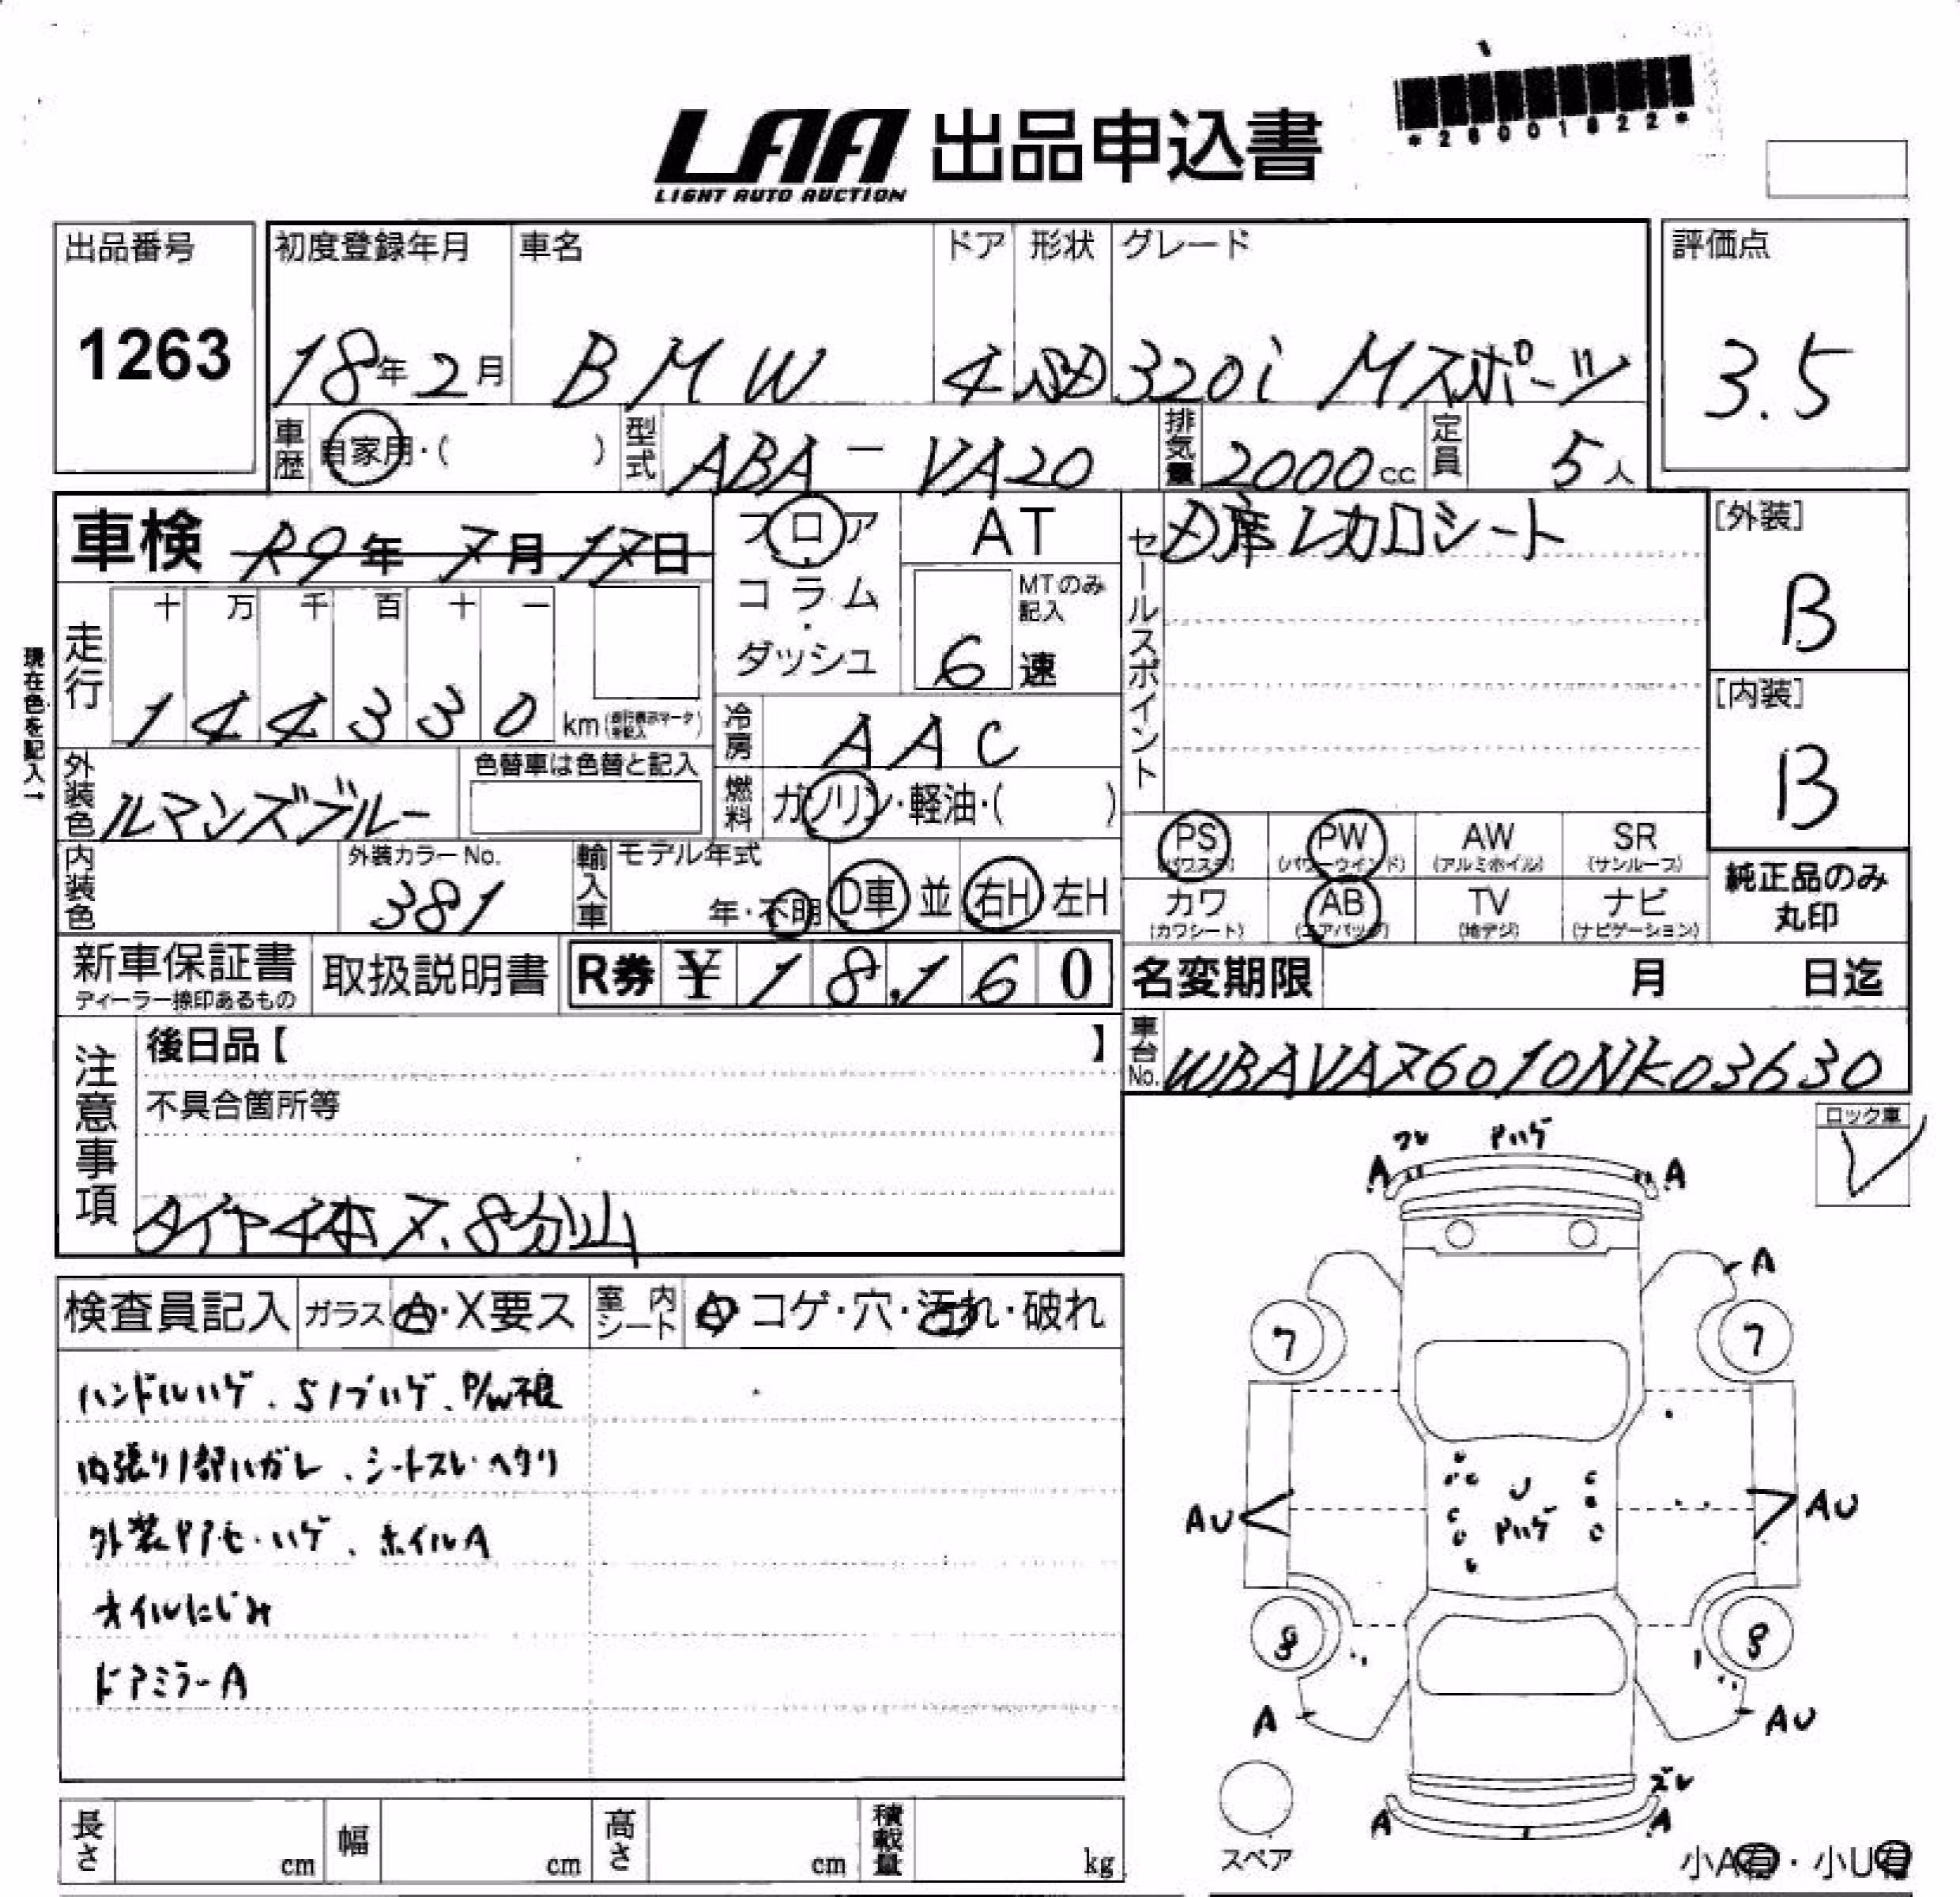 *26001822*
LAA 出品申込書
LIGHT AUTO AUCTION
出品番号
1263
初度登録年月
18年2月
車名
BMW
ドア
4
形状
SD
グレード
320i Mスポーツ
評価点
3.5
車歴
自家用・( )
型式
ABA-VA20
排気量
2000cc
定員
5人
車検 R9年7月17日
フロア
コラム
・
ダッシュ
AT
MTのみ記入
6速
セールスポイント
D席レカロシート
[外装]
B
[内装]
B
現在色を記入→
走行
十万千百十一
144330 km
冷房
AAC
外装色
ルマンズブルー
色替車は色替と記入
燃料
ガソリン・軽油・( )
内装色
外装カラーNo.
381
輸入車
モデル年式
年・不明
D車 並 右H 左H
PS
(パワステ)
PW
(パワーウインド)
AW
(アルミホイル)
SR
(サンルーフ)
カワ
(カワシート)
AB
(エアバッグ)
TV
(地デジ)
ナビ
(ナビゲーション)
純正品のみ
丸印
新車保証書
ディーラー捺印あるもの
取扱説明書
R券 ¥18,160
名変期限 月 日迄
車台No.
WBAVA76010NK03630
注意事項
後日品【 】
不具合箇所等
タイヤ4本7、8分山
ロック車
レ
検査員記入
ガラス A・X要ス
室内シート A・コゲ・穴・汚れ・破れ
ハンドルハゲ、S/ブハゲ、P/W不良
内張り1部ハガレ、シートスレ・ヘタリ
外装ヤケ・ハゲ、ホイルA
オイルにじみ
ドアミラーA
Pハゲ
A A
A
7 7
AU AU
U
Pハゲ
8 8
A AU
ズレ
A A
スペア
小A有・小U有
長さ cm
幅 cm
高さ cm
積載量 kg